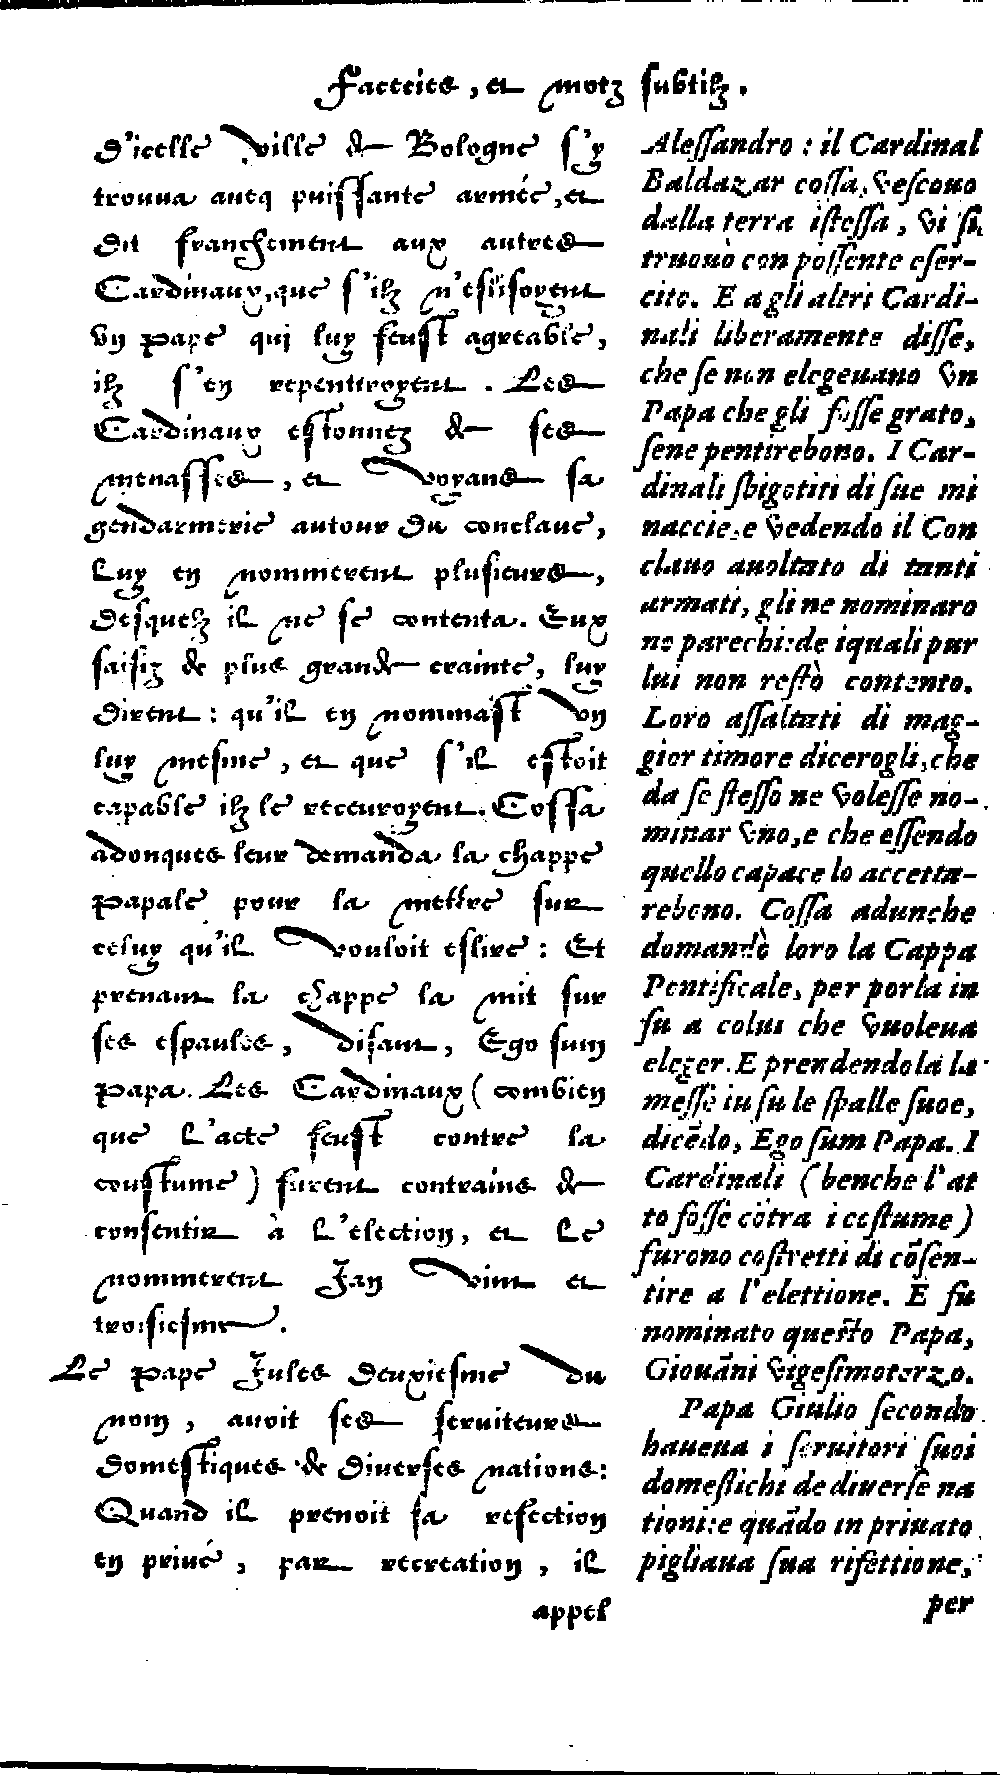 Faceties, et motz subtilz.
d'icelle ville de Bologne s'y
trouua aueq puissante armée, et
dit franchement aux autres
Cardinaux, que s'ilz n'eslisoyent
vn pape qui luy feust agreable,
ilz s'en repentiroyent. Les
Cardinaux estonnez de ses
menasses, et voyans sa
gendarmerie autour du conclaue,
luy en nommerent plusieurs,
desquelz il ne se contenta. Eux
saisiz de plus grande crainte, luy
dirent: qu'il en nommast vn
luy mesme, et que s'il estoit
capable ilz le receuroyent. Cossa
adonques leur demanda la chappe
papale pour la mettre sur
celuy qu'il vouloit eslire: Et
prenant la chappe la mit sur
ses espaules, disant, Ego sum
papa. Les Cardinaux (combien
que l'acte feust contre la
coustume) furent contrains de
consentir à l'election, et le
nommerent Jan vint et
troisiesme.
Le pape Jules deuxiesme du
nom, auoit ses seruiteurs
domestiques de diuerses nations:
Quand il prenoit sa refection
en priué, par recreation, il
appel
Alessandro: il Cardinal
Baldazar cossa, vescouo
dalla terra istessa, vi si
truouò con possente eser-
cito. E a gli altri Cardi-
nali liberamente disse,
che se non elegeuano vn
Papa che gli fosse grato,
sene pentirebono. I Car-
dinali sbigotiti di sue mi
naccie, e vedendo il Con
clauo auoltato di tanti
armati, gli ne nominaro
no parechi: de i quali pur
lui non restò contento.
Loro assaltati di mag-
gior timore dicerogli, che
da se stesso ne volesse no-
minar vno, e che essendo
quello capace lo accetta-
rebono. Cossa adunche
domandò loro la Cappa
Pontificale, per porla in
su a colui che vuoleua
eleger. E prendendola la
messe in su le spalle suoe,
dicēdo, Ego sum Papa. I
Cardinali (benche l'at
to fosse cōtra i costume)
furono costretti di cōsen-
tire a l'elettione. E fu
nominato questo Papa,
Giouāni vigesimoterzo.
Papa Giulio secondo
haueua i seruitori suoi
domestichi de diuerse na
tioni: e quādo in priuato
pigliaua sua rifettione,
per